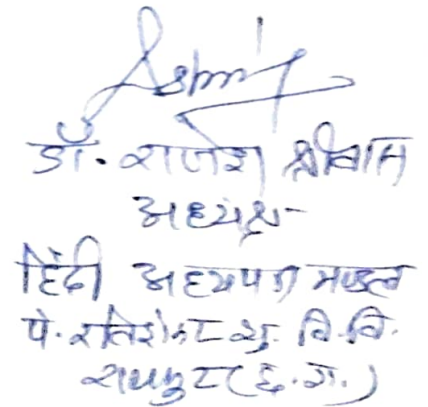 डॉ. राजेश श्रीवास
अध्यक्ष-
हिंदी अध्ययन मण्डल
पं. रविशंकर शु. वि.वि.
रायपुर (छ.ग.)